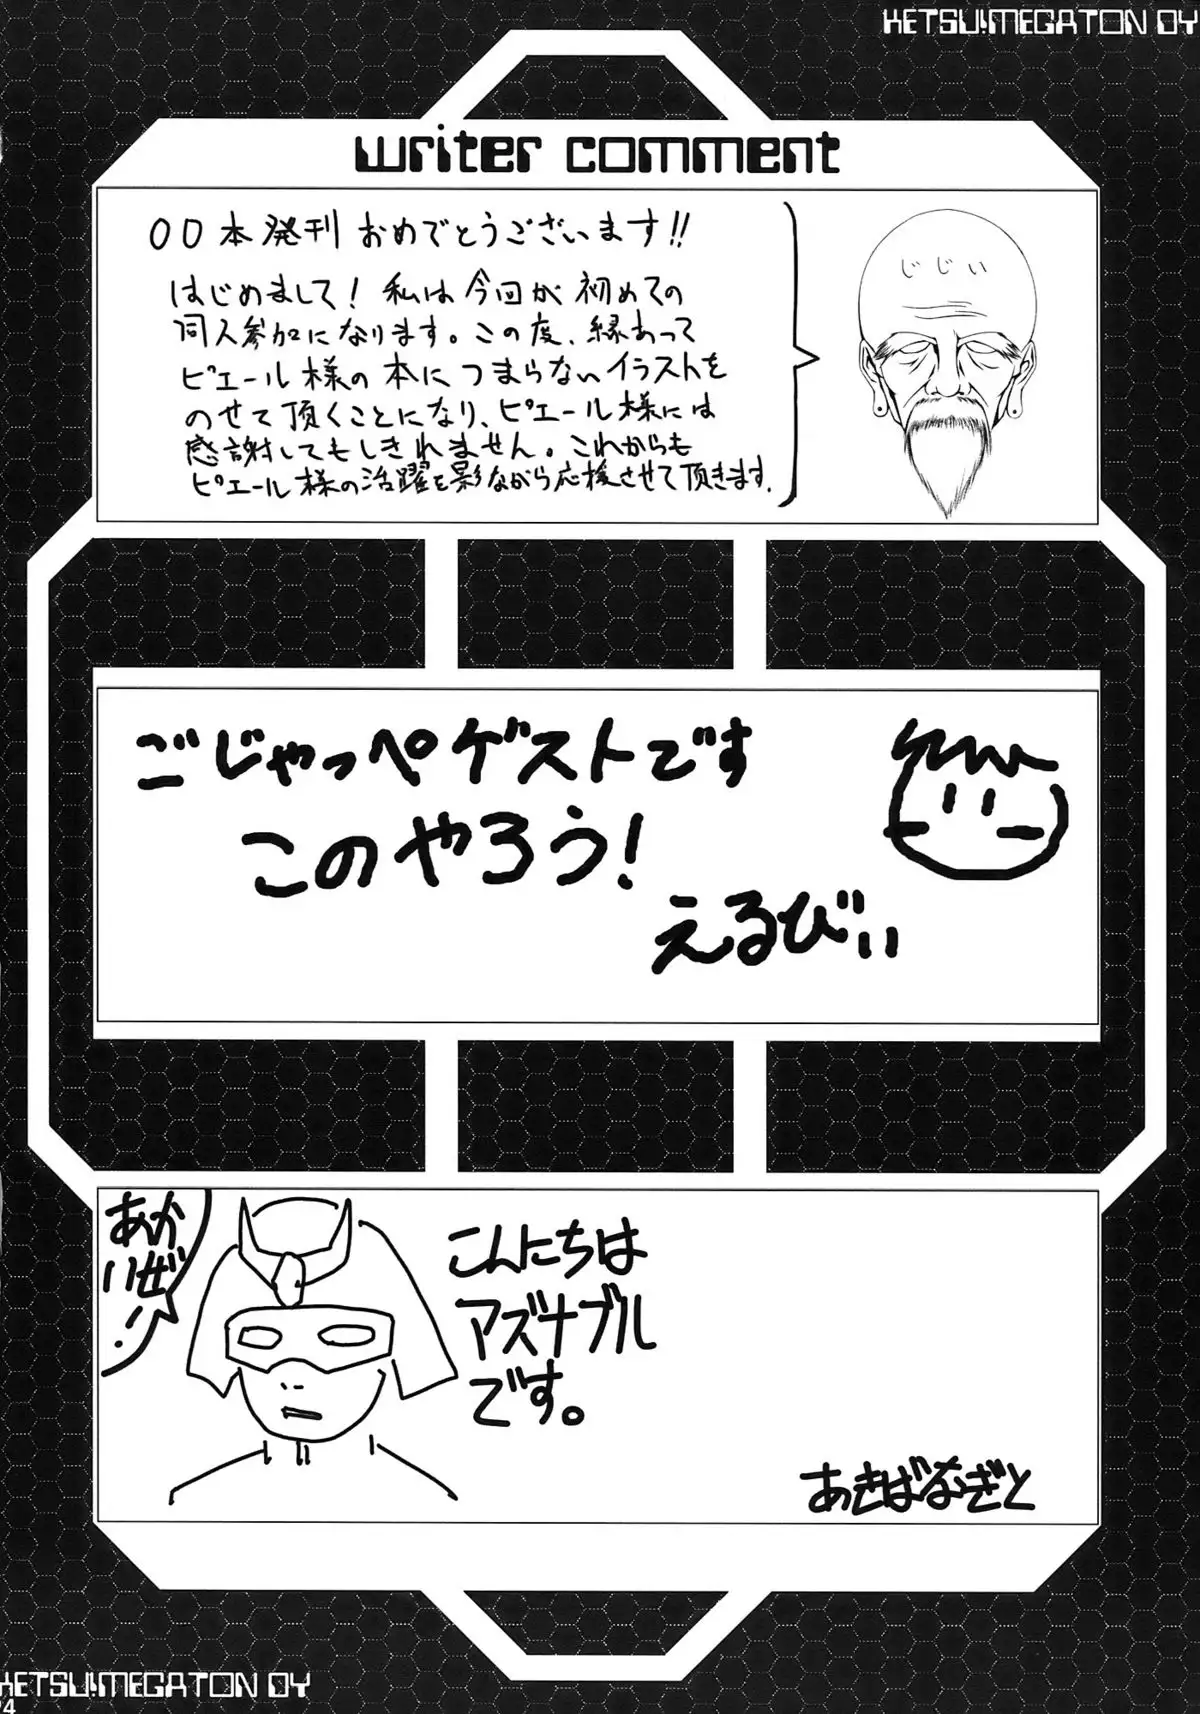 KETSU!MEGATON 0Y
writer comment
00本発刊 おめでとうございます!!
はじめまして! 私は今回が初めての
同人参加になります。この度、縁あって
ピエール様の本につまらないイラストを
のせて頂くことになり、ピエール様には
感謝してもしきれません。これからも
ピエール様の活躍を影ながら応援させて頂きます.
じじい
ごじゃっぺゲストです
このやろう!
えるびぃ
あか
いぜ
!!
こんにちは
アズナブル
です。
あきばなぎと
KETSU!MEGATON 0Y